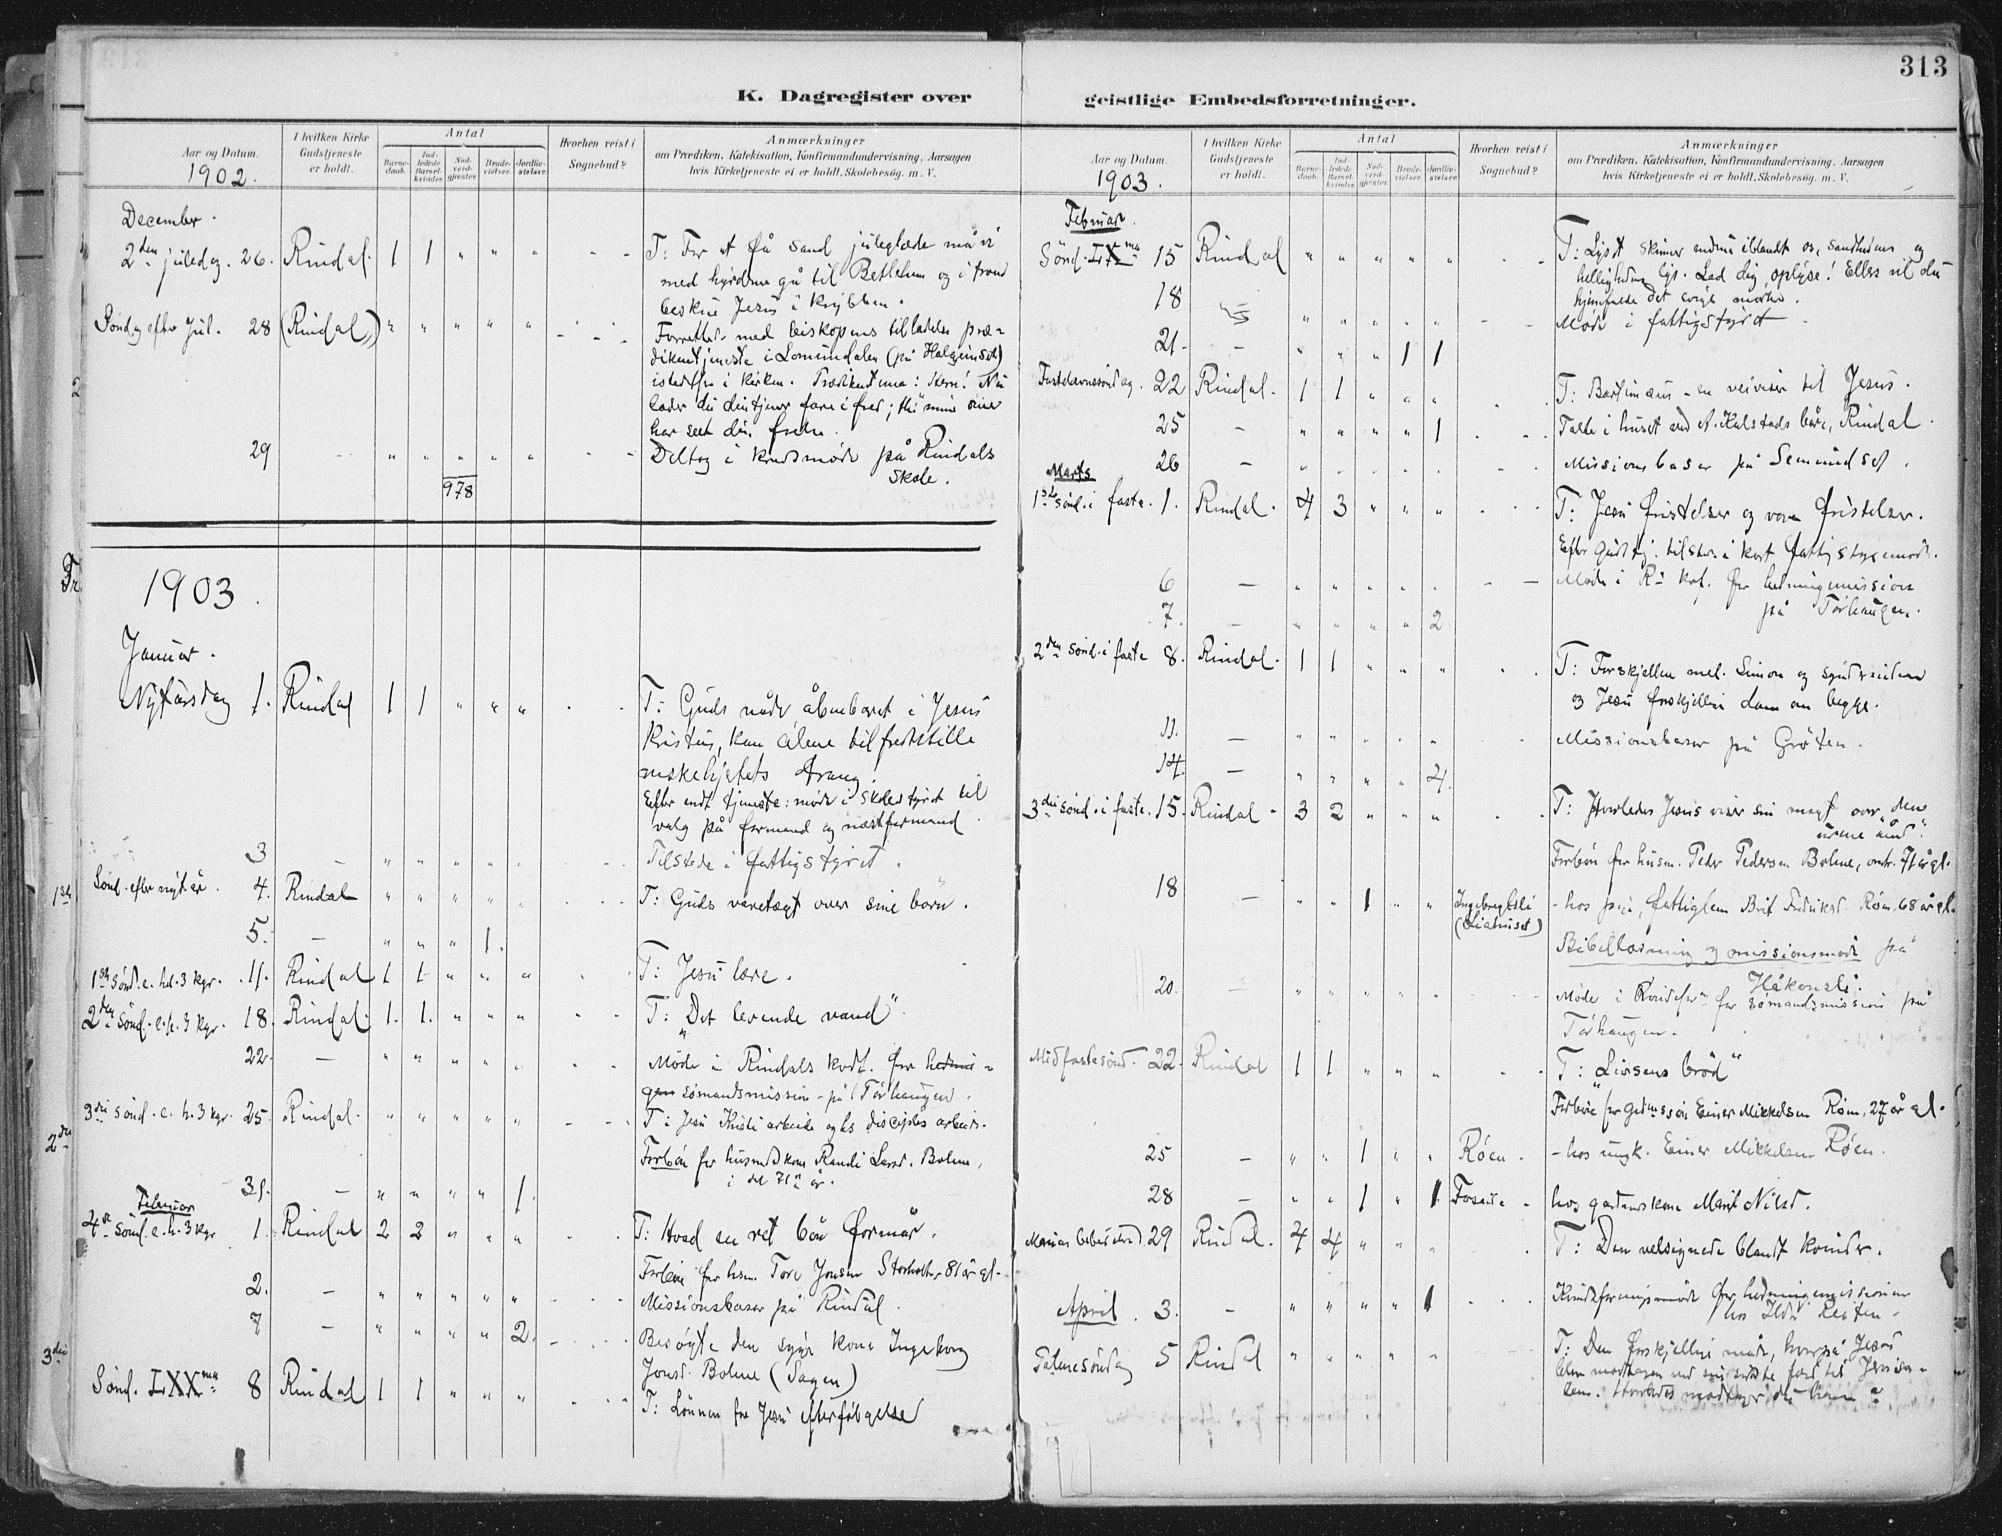 313
K. Dagregister over
Aar og Datum.
1902.
I hvilken Kirke Gudstjeneste er holdt.
Antal
Barne-daab.
Ind-ledede Barsel-kvinder.
Nad-verd-gjester.
Brude-vielser.
Jordfæ-stelser.
Hvorhen reist i Sognebud?
Anmærkninger
om Prædiken, Katekisation, Konfirmandundervisning, Aarsagen
hvis Kirketjeneste ei er holdt, Skolebesøg. m. V.
December.
2den juledag. 26. Rindal. 1 1 " " " T: For at få sand juleglæde må vi
med hyrderne gå til Betlehem og i troen
beskue Jesus i krybben.
Søndag efter Jul. 28 (Rindal) " " " " " Forrettet med biskopens tilladelse præ-
diketjeneste i Lomundalen (på Halgeimset)
istedetfor i kirken. Herre! Nu
lader du din tjener fare i fred; thi mine øine
har seet din frelse.
29 - " " " " " Deltog i kredsmøde på Rindals
Skole.
978
1903.
Januar.
Nytårsdag 1. Rindal 1 1 " " " T: Guds nåde, åbenbaret i Jesus
Kristus, kan alene tilfredsstille
trang.
Efter endt tjeneste: møde i skolestyret til
valg på formand og næstformand.
3 - " " " " " Tilstede i fattigstyret.
Sønd. efter nytår. 4. Rindal " " " " " T: Guds varetægt over sine børn.
5. - " " " 1.
1ste sønd. e. hel. 3 kgr. 11. Rindal 1 1 " " " T: Jesu lære.
2den sønd. e. h. 3 kgr. 18. Rindal. 1. 1. " " " T: "Det levende vand".
22. - " " " " " Møde i Rindals kvdf. for
sømandsmission - på Tørhaugen.
3die sønd. e. h. 3 kgr. 25. Rindal. " " " " " T: Jesu Kristi arbeide og hs disciples arbeide.
Forbøn for husmdkone Randi Larsd. Bolme,
i det 71de år.
31. - " " " " 1.
Februar
4de sønd. e. h. 3 kgr 1. Rindal 2 2 " " " T: Hvad en ret bøn formår.
Forbøn for hsm. Tore Jonsen Storholt 81 år gl.
2. - " " " " " Missionsbasar på Rindal.
7 - " " " " 2. Besøgte den syge kone Ingeborg
Jonsd. Bolme (Sagen)
Sønd. LXXma 8 Rindal 1 1 " " " T: Lønnen for Jesu efterfølgelse
geistlige Embedsforretninger.
Aar og Datum.
1903.
I hvilken Kirke Gudstjeneste er holdt.
Antal
Barne-daab.
Ind-ledede Barsel-kvinder.
Nad-verd-gjester.
Brude-vielser.
Jordfæ-stelser.
Hvorhen reist i Sognebud?
Anmærkninger
om Prædiken, Katekisation, Konfirmandundervisning, Aarsagen
hvis Kirketjeneste ei er holdt, Skolebesøg. m. V.
Februar.
Sønd. LXma 15 Rindal " " " " " T: Lyset skinner endnu iblandt os, sandhedens og
hellighedens lys. Lad dig oplyse! Ellers vil du
hjemfalde det evige mørke.
18 " " " " " Møde i fattigstyret.
21. - " " " 1 1
Fastelavnssøndag. 22 Rindal. 1 1 " " " T: Bartimæus - en veiviser til Jesus.
25 - " " " " 1 Talte i huset ved A. Kalstads båre, Rindal.
26 - " " " " " Missionsbasar på Semundset.
Marts
1ste sønd. i faste. 1. Rindal. 4 3 " " " T: Jesu fristelser og vore fristelser.
Efter gudstj. tilstede i kort fattigstyremøde.
6 - " " " " " Møde i kvf. for hedningemission
på Tørhaugen.
7. - " " " " 2
2den sønd. i faste 8. Rindal. 1 1 " " " T: Forskjellen mel. Simon og synderinden
og Jesu forskjellige dom om begge.
11. - " " " " " Missionsbasar på Grøten.
14. - " " " " 4.
3die sønd. i faste. 15. Rindal - 3 2 " " " T: Hvorledes Jesus viser sin magt over "den
urene ånd".
Forbøn for husm. Peder Pedersen Bolme, omtr. 71 år gl.
18 - " " 1 " " Ingebregtsli
(Liahuset) - hos fattiglem Brit Fredriksd. Røm 68 år gl.
Bibellæsning og missionsmøde på
Håkonsli.
20. - " " " " " Møde i for sømandsmission på
Tørhaugen.
Midfastesønd. 22. Rindal 1 1 " " " T: "Livsens brød"
Forbøn for gdmssøn Einer Mikkelsen Røen, 27 år gl.
25 - " " 1 " " Røen. - hos ungk. Einer Mikkelsen Røen.
28 - " " 1 " 1 hos gardmskone Marit Nilsd.
Marias bebudelsesd. 29 Rindal. 4 4 " " " T: Den velsignede blandt kvinder.
April. 3. - " " " " 1 Kvindeforeningsmøde for hedningemissionen
hos Reiten.
Palmesøndag 5 Rindal " " " " " T: Den forskjellige måde, hvorpå Jesus
blev modtagen ved sin sidste færd til Jerusa-
lem. Hvorledes modtager du ham?
2
Fr
1ste
2den
3die